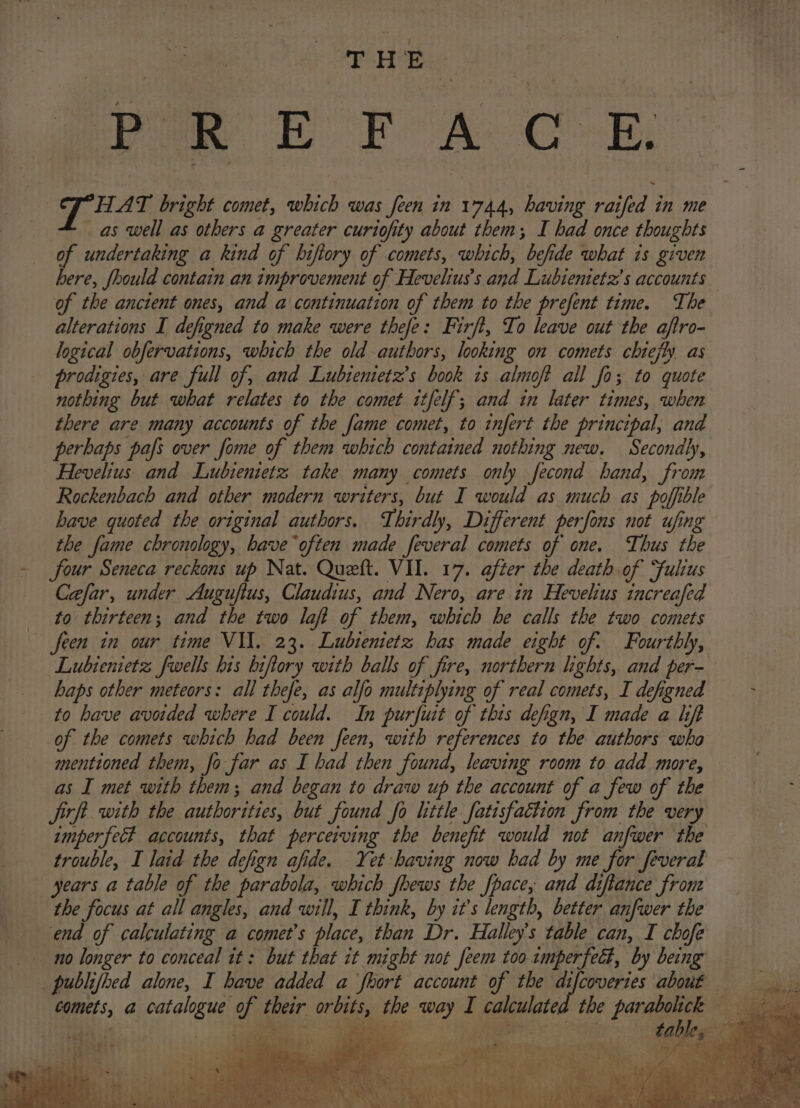 THE
PREFACE.
THAT bright comet, which was ſeen in 1744, having raiſed in me
as well as others a greater curioſity about them; I had once thoughts
of undertaking a kind of hiſtory of comets, which, beſide what is given
here, ſhould contain an improvement of Hevelius's and Lubienietz's accounts
of the ancient ones, and a continuation of them to the preſent time. The
alterations I deſigned to make were theſe: Firſt, To leave out the aſtro-
logical obſervations, which the old authors, looking on comets chiefly as
prodigies, are full of, and Lubienietz's book is almoſt all ſo; to quote
nothing but what relates to the comet itſelf; and in later times, when
there are many accounts of the ſame comet, to inſert the principal, and
perhaps paſs over ſome of them which contained nothing new. Secondly,
Hevelius and Lubienietz take many comets only ſecond hand, from
Rockenbach and other modern writers, but I would as much as poſſible
have quoted the original authors. Thirdly, Different perſons not uſing
the ſame chronology, have often made ſeveral comets of one. Thus the
four Seneca reckons up Nat. Quæſt. VII. 17. after the death of Julius
Cæſar, under Auguſtus, Claudius, and Nero, are in Hevelius increaſed
to thirteen; and the two laſt of them, which he calls the two comets
ſeen in our time VII. 23. Lubienietz has made eight of. Fourthly,
Lubienietz ſwells his hiſtory with balls of fire, northern lights, and per-
haps other meteors: all theſe, as alſo multiplying of real comets, I deſigned
to have avoided where I could. In purſuit of this deſign, I made a liſt
of the comets which had been ſeen, with references to the authors who
mentioned them, ſo far as I had then found, leaving room to add more,
as I met with them; and began to draw up the account of a few of the
firſt with the authorities, but found ſo little ſatisfaction from the very
imperfect accounts, that perceiving the benefit would not anſwer the
trouble, I laid the deſign aſide. Yet having now had by me for ſeveral
years a table of the parabola, which ſhews the ſpace, and diſtance from
the focus at all angles, and will, I think, by it's length, better anſwer the
end of calculating a comet's place, than Dr. Halley's table can, I choſe
no longer to conceal it: but that it might not ſeem too imperfect, by being
publiſhed alone, I have added a ſhort account of the diſcoveries about
comets, a catalogue of their orbits, the way I calculated the parabolick
table,